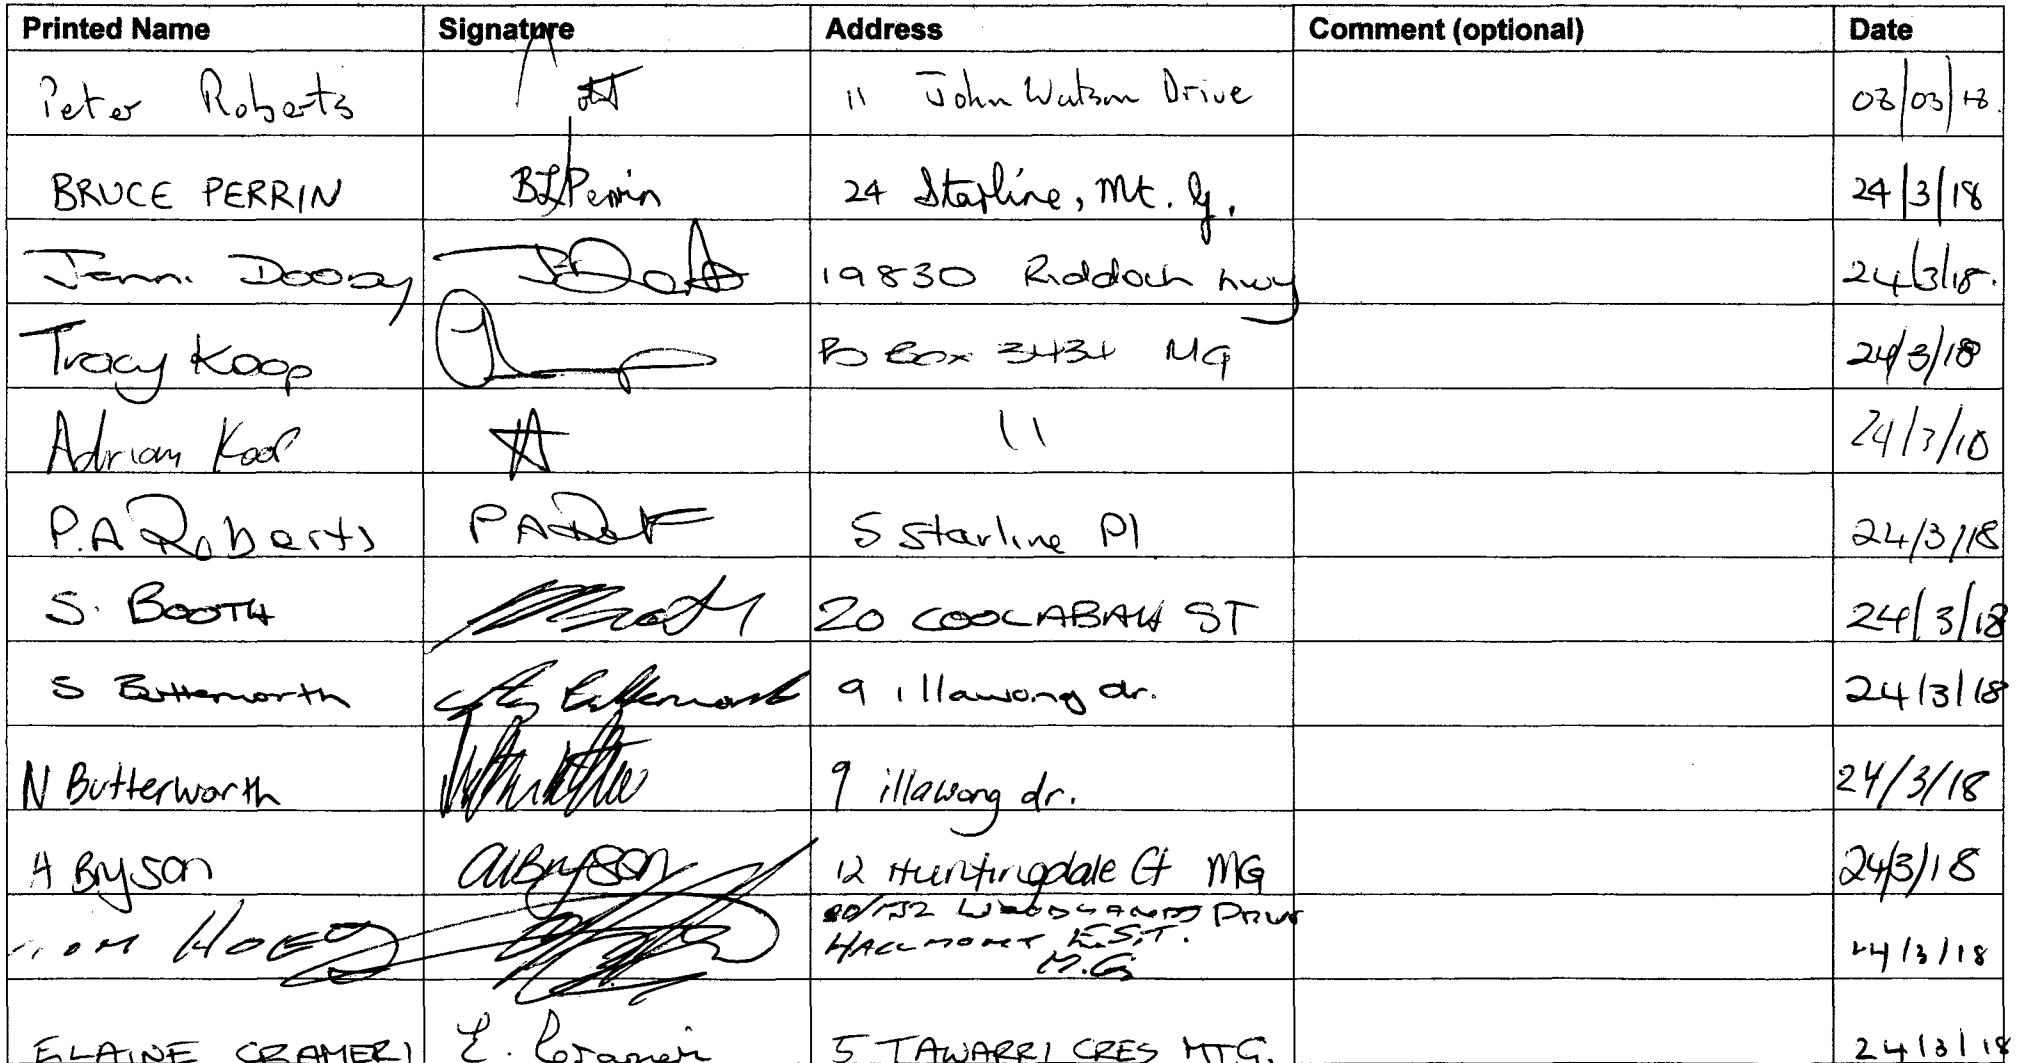 Printed Name Signature Address Comment (optional) Date
Peter Roberts 11 John Watson Drive 03/18
BRUCE PERRIN BLPerrin 24 Starline, Mt. G. 24/3/18
Jenni 19830 Riddoch hwy 24/3/18.
Tracy Koop PO Box 3434 MG 24/3/18
Adrian Koop 11 24/3/18
P.A Roberts 5 Starline Pl 24/3/18
S. BOOTH 20 COOLABAH ST 24/3/18
S Butterworth 9 illawong dr. 24/3/18
N Butterworth 9 illawong dr. 24/3/18
A Bryson ABryson 12 Huntingdale Ct MG 24/3/18
WOODLANDS Drive
TOM HOEY EST. 24/3/18
M.G
ELAINE CRAMERI E. Crameri 5 TAWARRI CRES MT G. 24/3/18